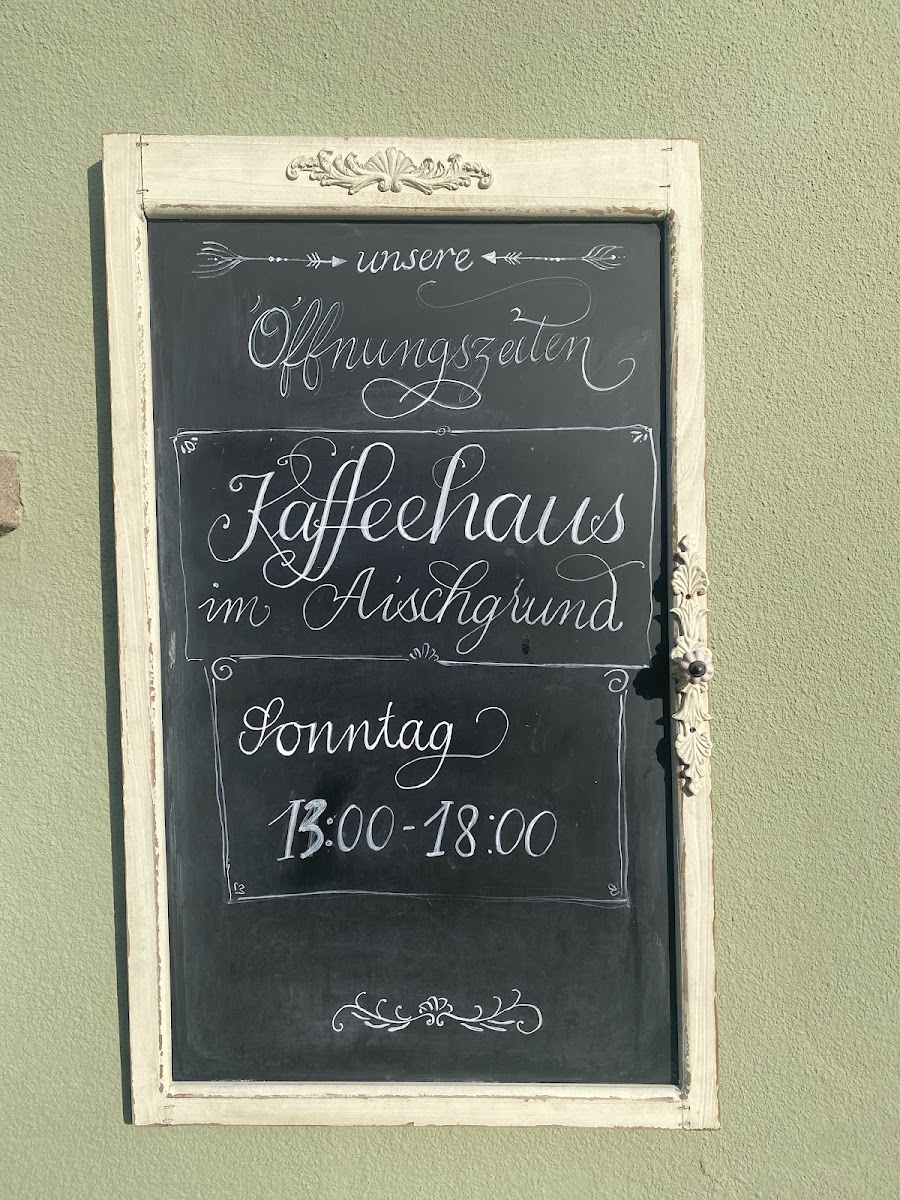 unsere
Öffnungszeiten
Kaffeehaus
im Aischgrund
Sonntag
13:00-18:00